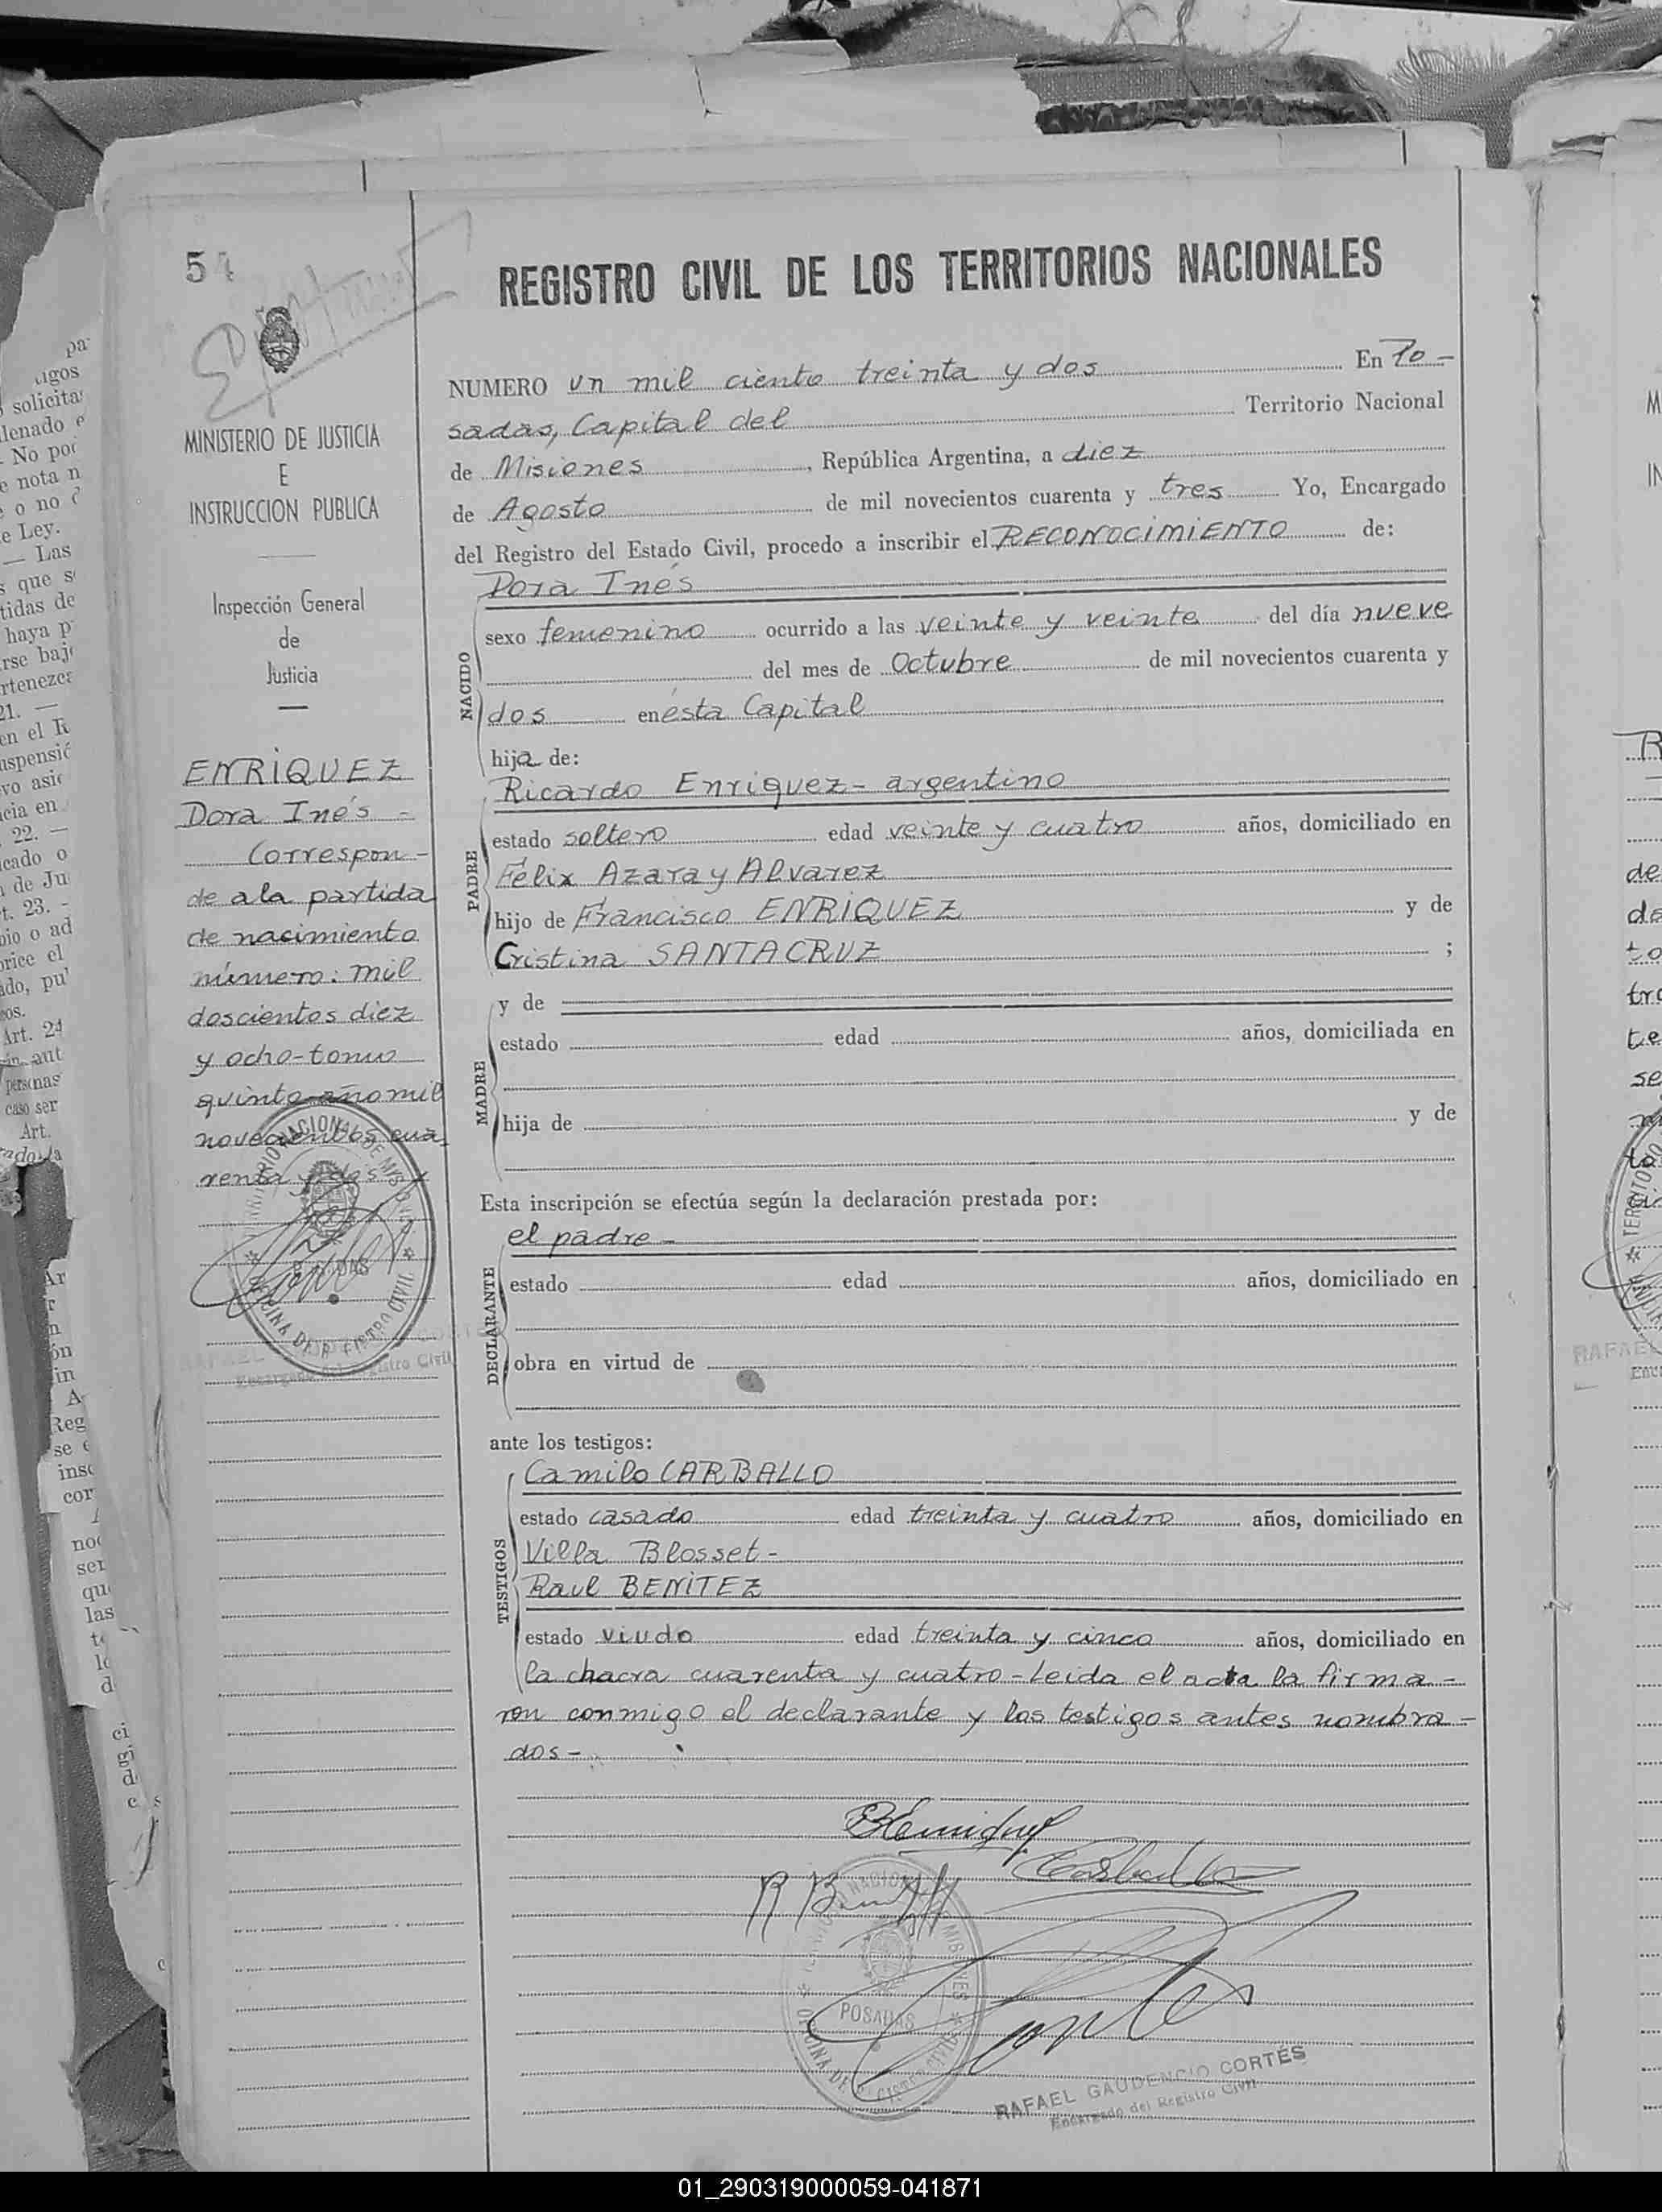 54
REGISTRO CIVIL DE LOS TERRITORIOS NACIONALES
MINISTERIO DE JUSTICIA
E
INSTRUCCION PUBLICA
Inspección General
de
Justicia
ENRIQUEZ
Dora Inés -
Correspon-
de a la partida
de nacimiento
número: mil
doscientos diez
y ocho - tomo
quinto año mil
novecientos cua
renta y dos
NUMERO un mil ciento treinta y dos En Po-
sadas, Capital del Territorio Nacional
de Misiones, República Argentina, a diez
de Agosto de mil novecientos cuarenta y tres Yo, Encargado
del Registro del Estado Civil, procedo a inscribir el RECONOCIMIENTO de:
Dora Inés
NACIDO
sexo femenino ocurrido a las veinte y veinte del día nueve
del mes de Octubre de mil novecientos cuarenta y
dos en ésta Capital
hija de:
PADRE
Ricardo Enriquez - argentino
estado soltero edad veinte y cuatro años, domiciliado en
Félix Azara y Alvarez
hijo de Francisco ENRIQUEZ y de
Cristina SANTACRUZ ;
MADRE
y de
estado edad años, domiciliada en
hija de y de
Esta inscripción se efectúa según la declaración prestada por:
DECLARANTE
el padre -
estado edad años, domiciliado en
obra en virtud de
ante los testigos:
TESTIGOS
Camilo CARBALLO
estado casado edad treinta y cuatro años, domiciliado en
Villa Blosset -
Raul BENITEZ
estado viudo edad treinta y cinco años, domiciliado en
la chacra cuarenta y cuatro - Leida el acta la firma-
ron conmigo el declarante y los testigos antes nombra-
dos -
POSADAS
RAFAEL GAUDENCIO CORTÉS
Encargado del Registro Civil
01_290319000059-041871